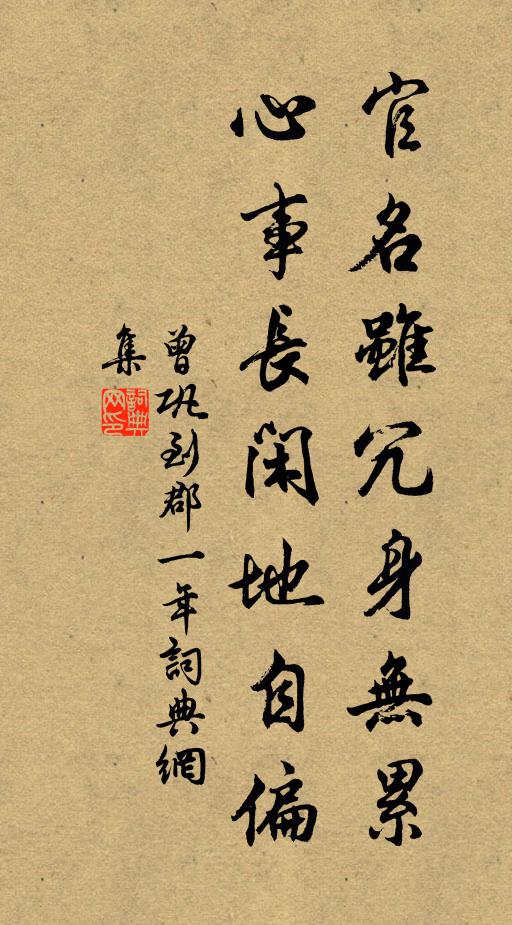 官名雖冗身無累
心事長閑地自偏
曾巩到郡一年詞典網
集
詞典網印